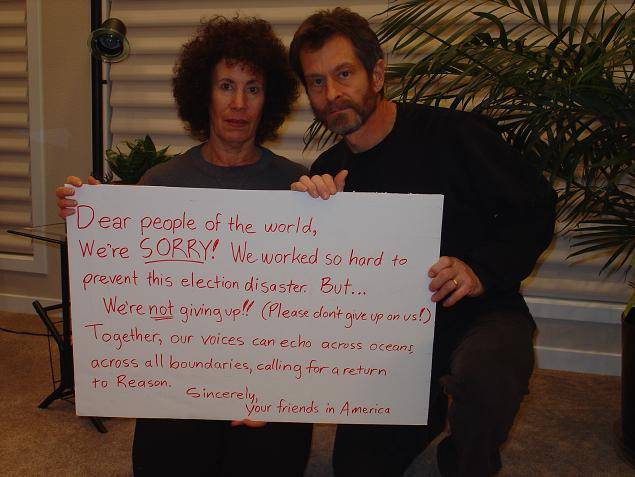 Dear people of the world,
We're SORRY! We worked so hard to
prevent this election disaster. But...
We're not giving up!! (Please don't give up on us!)
Together, our voices can echo across oceans,
across all boundaries, calling for a return
to Reason.
Sincerely,
your friends in America